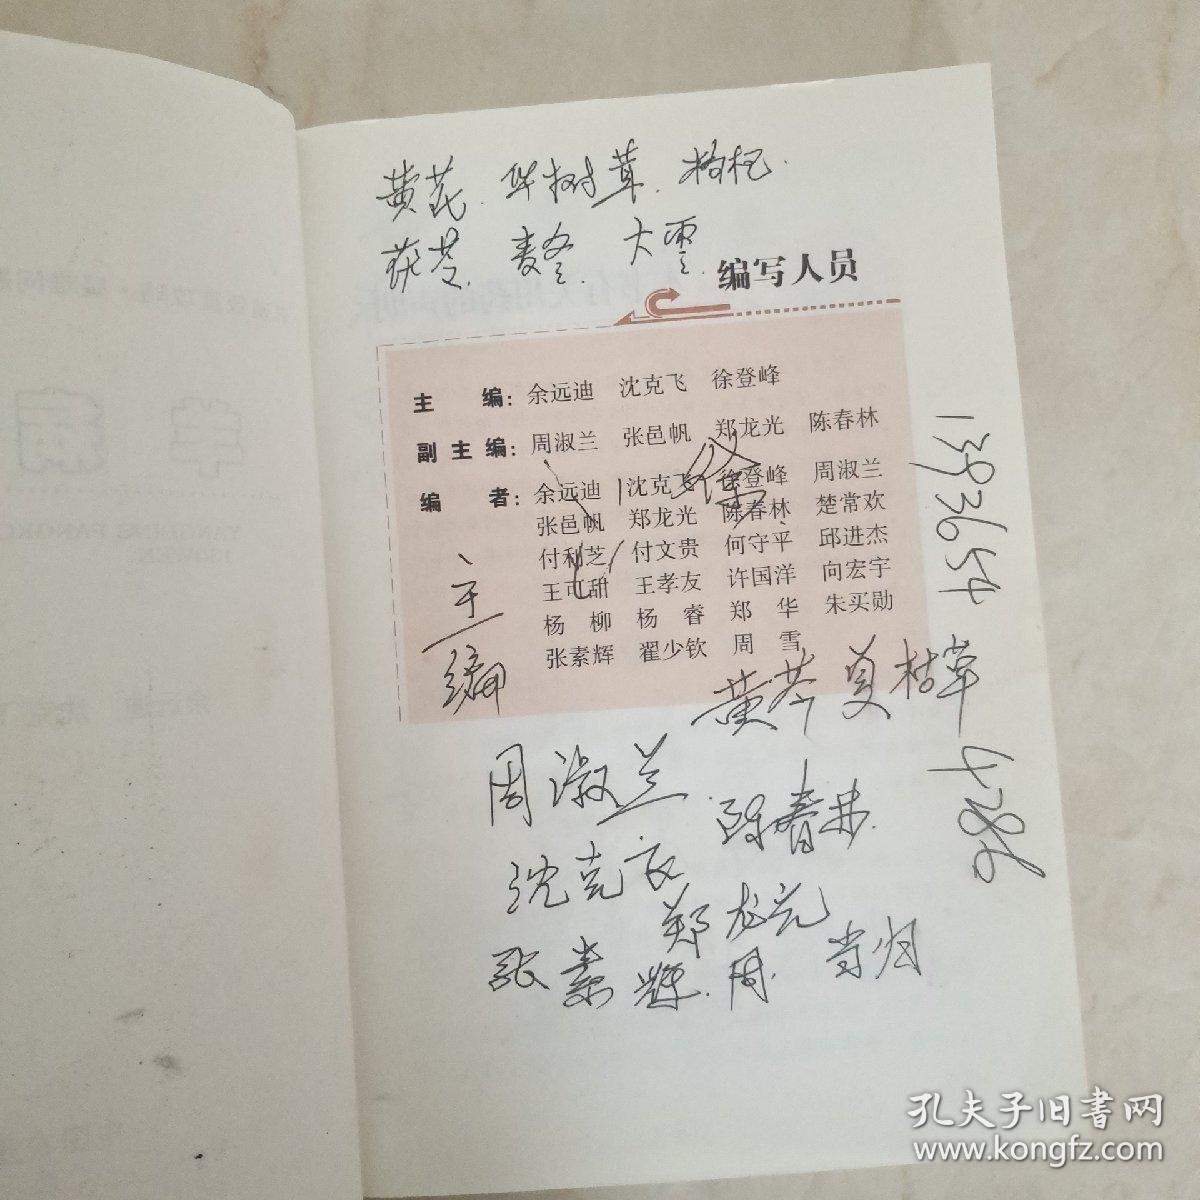 黄芪 华树茸 枸杞
茯苓 麦冬 大枣
编写人员
主 编：余远迪 沈克飞 徐登峰
副主编：周淑兰 张邑帆 郑龙光 陈春林
编 者：余远迪 沈克飞 徐登峰 周淑兰
张邑帆 郑龙光 陈春林 楚常欢
付利芝 付文贵 何守平 邱进杰
王可甜 王孝友 许国洋 向宏宇
杨 柳 杨 睿 郑 华 朱买勋
张素辉 翟少钦 周 雪
主编
黄芩 夏枯草
周淑兰
陈春林
沈克飞
郑龙光
张素辉 周 当归
13936544786
孔夫子旧书网
www.kongfz.com